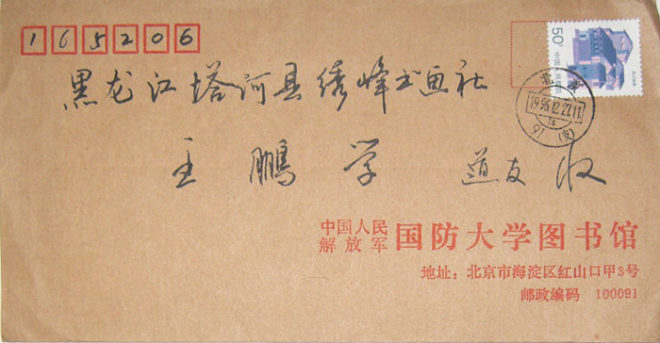 165206
黑龙江塔河县绣峰书画社
王鹏学 道友 收
50分
北京
1996.12.22.11
91(支)
中国人民解放军 国防大学图书馆
地址：北京市海淀区红山口甲3号
邮政编码 100091